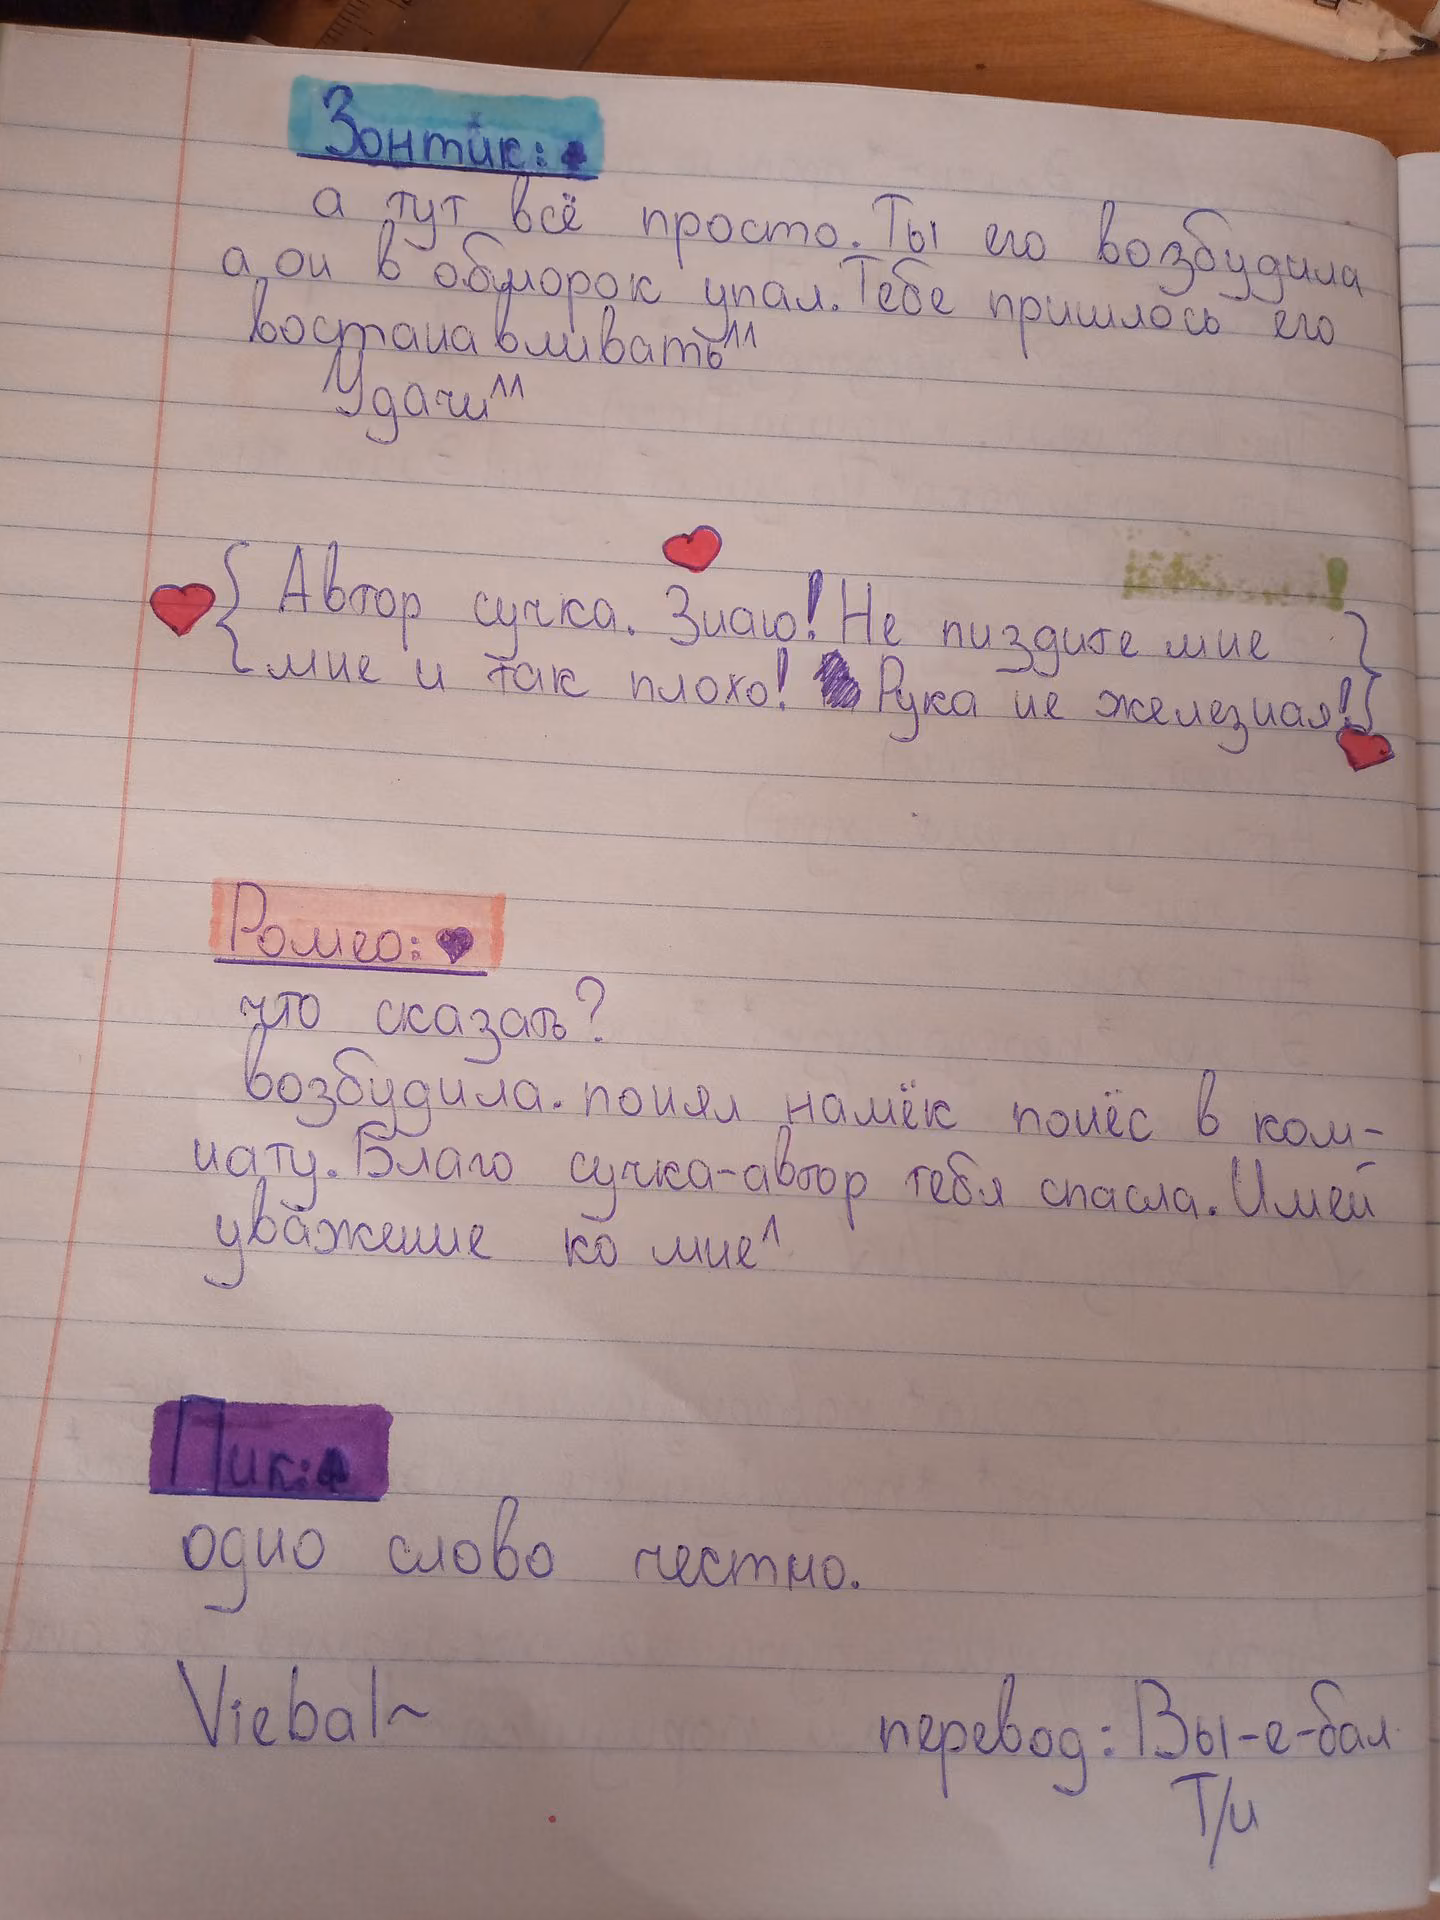 Зонтик:♠
а тут всё просто. Ты его возбудила
а он в обморок упал. Тебе пришлось его
востанавливать^^
Удачи^^
{Автор сучка. Знаю! Не пиздите мне
мне и так плохо! Рука не железная!}
Ромео:♥
что сказать?
возбудила. понял намёк понёс в ком-
нату. Благо сучка-автор тебя спасла. Имей
уважение ко мне^
Пик:♠
одно слово честно.
Viebal~ перевод: Вы-е-бал
Т/и